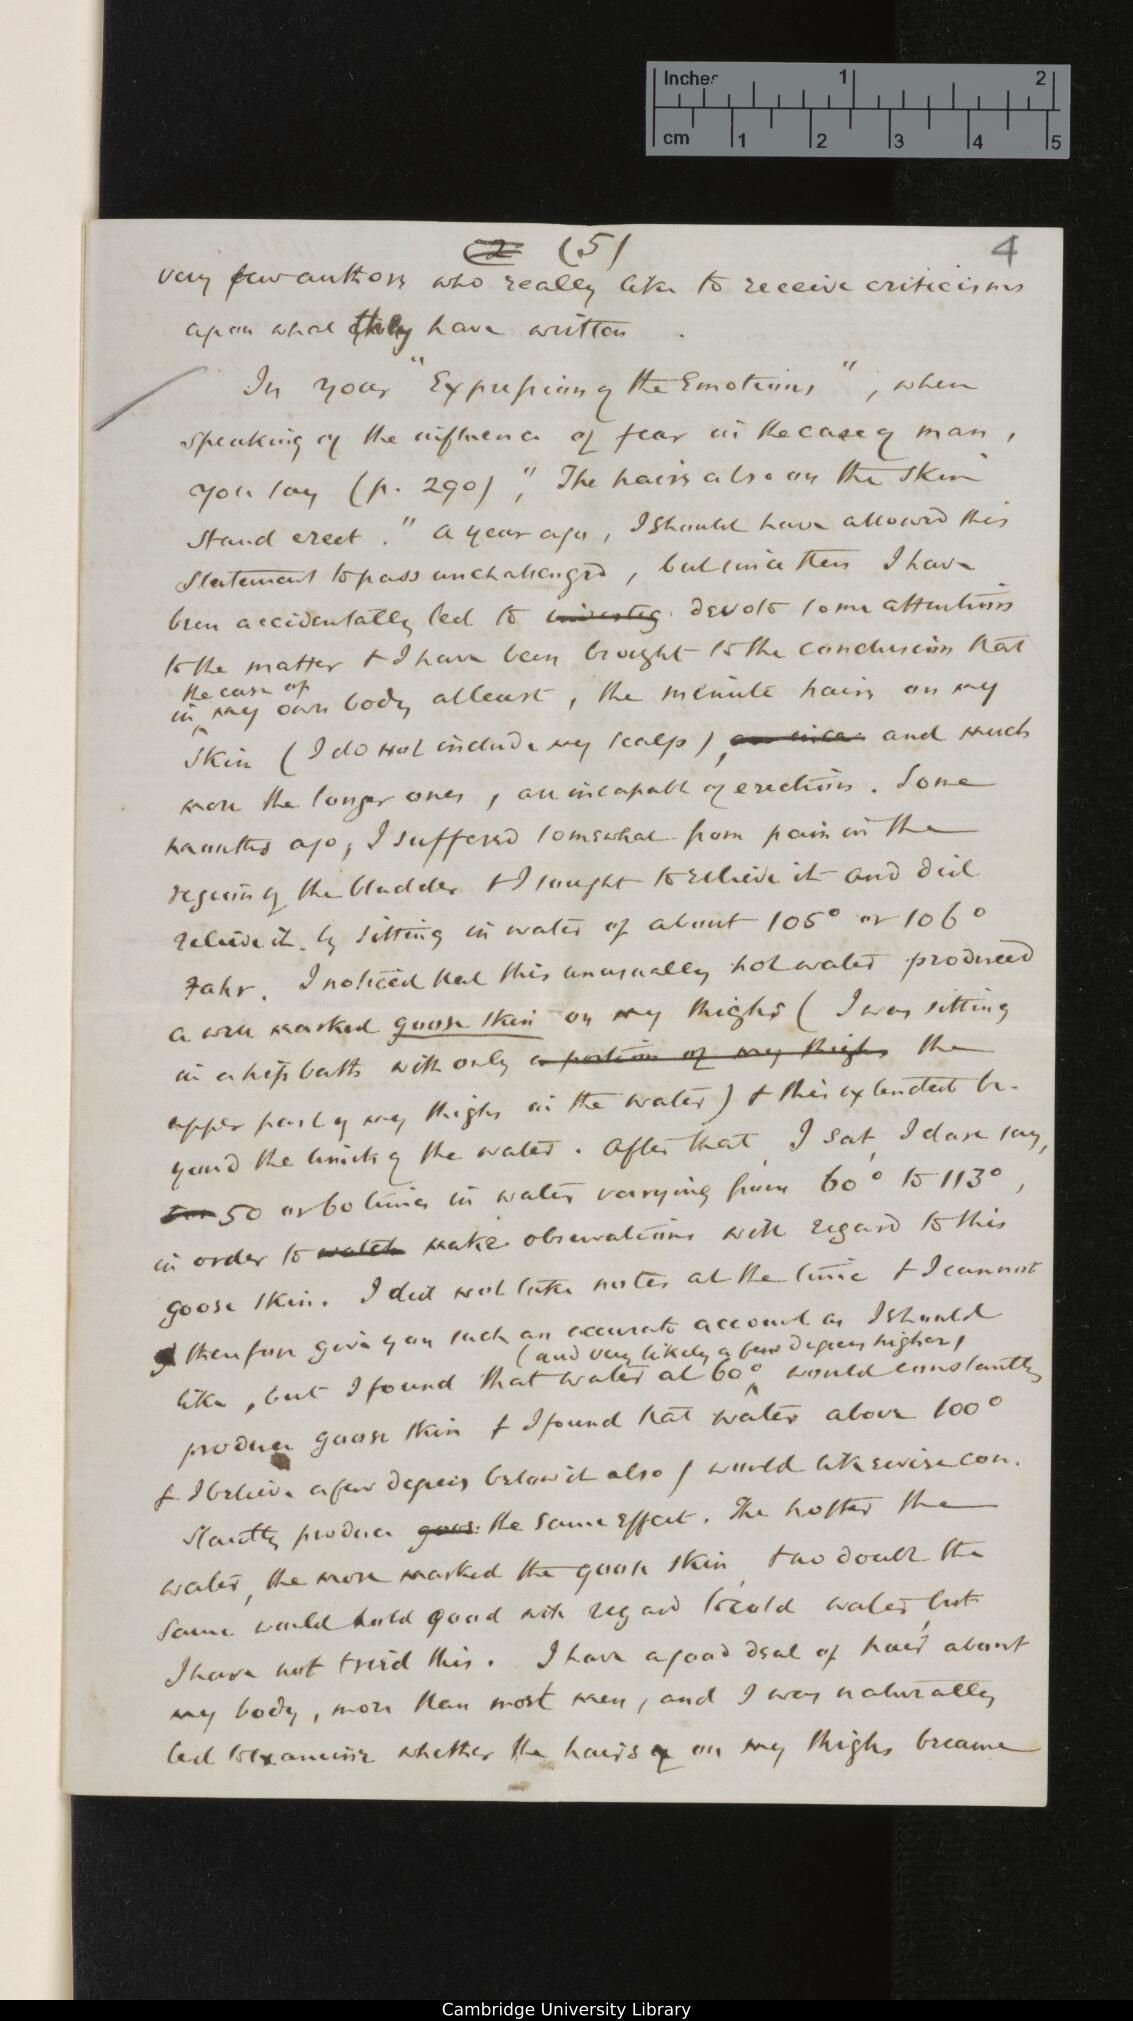 Inches 1 2
cm 1 2 3 4 5
(2 (5) 4
very few authors who really like to receive criticisms
upon what they have written .
In your "Expression of the Emotions", when
speaking of the influence of fear in the case of man,
you say (p. 290), "The hairs also on the skin
stand erect." A year ago, I should have allowed this
statement to pass unchallenged, but since then I have
been accidentally led to investig devote some attention
to the matter & I have been brought to the conclusion that
the case of
in my own body at least, the minute hairs on my
skin (I do not include my scalp), and much
more the longer ones, are incapable of erection. Some
months ago, I suffered somewhat from pain in the
region of the bladder & I sought to relieve it and did
relieve it by sitting in water of about 105° or 106°
Fahr. I noticed that this unusually hot water produced
a well marked goose skin on my thighs (I was sitting
in a hip bath with only a portion of my thighs the
upper part of my thighs in the water) & this extended be-
yond the limits of the water. After that, I sat, I dare say,
50 or 60 times in water varying from 60° to 113°,
in order to watch make observations with regard to this
goose skin. I did not take notes at the time & I cannot
therefore give you such an accurate account as I should
(and very likely a few degrees higher)
like, but I found that water at 60° would constantly
produce goose skin & I found that water above 100°
& I believe a few degrees below it also) would likewise con-
stantly produce goos the same effect. The hotter the
water, the more marked the goose skin, & no doubt the
same would hold good with regard to cold water, but
I have not tried this. I have a good deal of hair about
my body, more than most men, and I was naturally
led to examine whether the hairs on my thighs became
Cambridge University Library